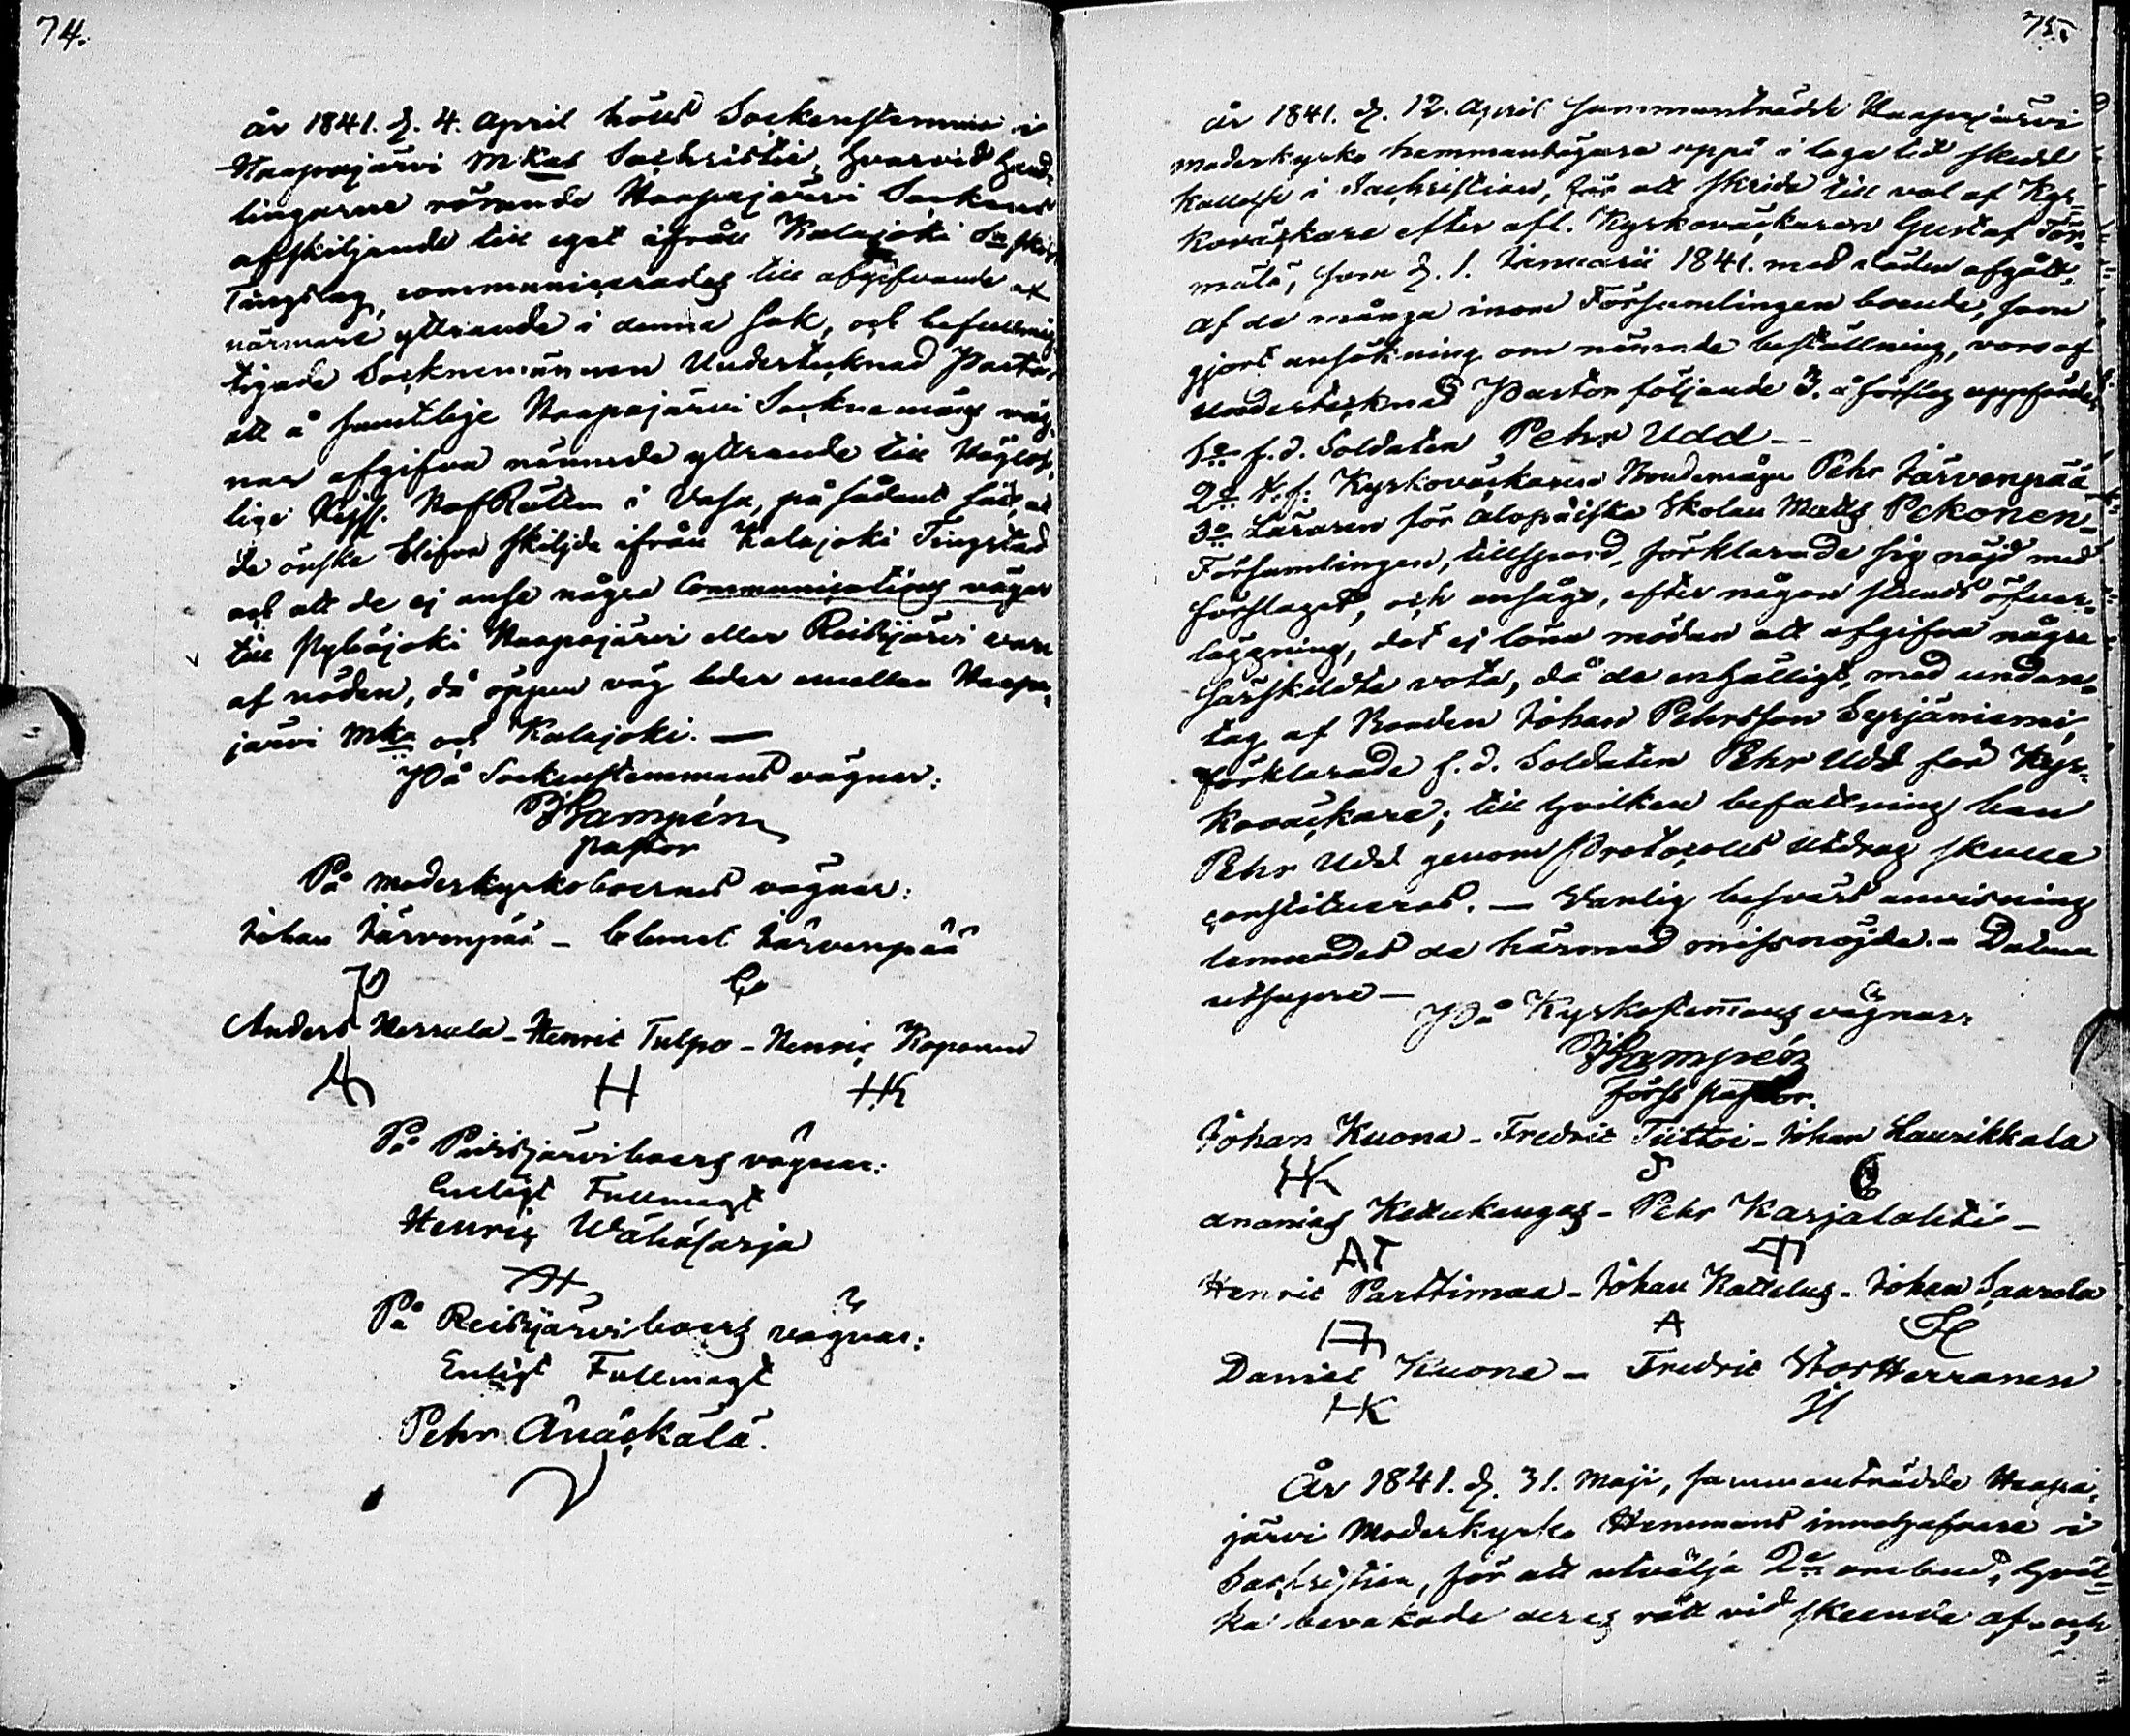 74.
år 1841. d. 4. April hölls Sockenstemma i
Haapajärvi Mkas Sachristie, hvarvid hand-
lingarne rörande Haapajärvi Sockens
afskiljande till eget ifrån Kalajoki
Tingslag, communicerades till afgifvande af
närmare yttrande i denna sak, och befullmäg-
tigade Socknemännen Undertecknad Pastor
att å samtelige Haapajärvi Socknemäns väg-
nar afgifva nämnde yttrande till Höglof-
lige Kejs. HofRätten i Vasa, på sådant sätt, at
de önska blifva skiljde ifrån Kalajoki Tingstad
och att de ej anse några Communications vägar
till Pyhäjoki Haapajärvi eller Reisjärvi vara
af nöden, då öppen väg leder emellan Haapa-
järvi Mka och Kalajoki. —
På Sockenstemmans vägnar:
Pastor
På Moderkyrkoboernes vägnar:
Johan Järvenpää – Clemet Järvenpää
Anders – Henric Tulpo – Henric Koponen
AH H HK
På Pidisjärviboers vägnar:
Enligt Fullmagt
Henric Wähäsarja
På Reisjärviboers vägnar:
Enligt Fullmagt
Pehr Änäckälä.
75.
år 1841. d. 12. April sammanträdde Haapajärvi
moderkyrko hemmansägare uppå i laga tid skedd
kallelse i Sachristian, för att skrida till val af Kyr-
koväckare efter afl. Kyrkoväckaren Gustaf Tör-
mälä, som d. 1. Januarii 1841. med döden afgått.
Af de många inom Församlingen boende, som
gjort ansökning om nämnde beställning, voro af
Undertecknad Pastor följande 3. å förslag uppförde
1o f.d. Soldaten Pehr Udd --
2o t.f. Kyrkoväckaren Bondemågen Pehr Järvenpää
3o Läraren för Mats Pekonen.
Församlingen, tillspord, förklarade sig nöjd med
förslaget, och ansågo, efter någon stunds öfver-
läggning, det ej löna mödan att afgifva några
särskildte vota, då de enhälligt, med undan-
tag af Bonden Johan Pehrsson Syrjäniemi,
förklarade f.d. Soldaten Pehr Udd för Kyr-
koväckare; till hvilken befattning han
Pehr Udd genom Protocolls Utdrag skulle
constitueras. — Vanlig besvärs anvisning
lemnades de härmed missnöjde. – Datum
utsupra —
På Kyrkostemans vägnar:
Förss Pastor.
Johan Kuona – Fredric Tiittoi – Johan Laurikkala
HK
Ananias Ketukangas – Pehr Karjalahti –
AT
Henric Parttimaa – Johan Kattelus – Johan Saarela
A
Daniel Kuona – Fredric StorHerranen
HK
År 1841. d. 31. Maji, sammanträdde Haapa-
järvi Moderkyrko Hemmans innehafvare i
Sachristian, för att utvälja 2ne ombud, hvil-
ka bevakade deras rätt vid skeende af- och